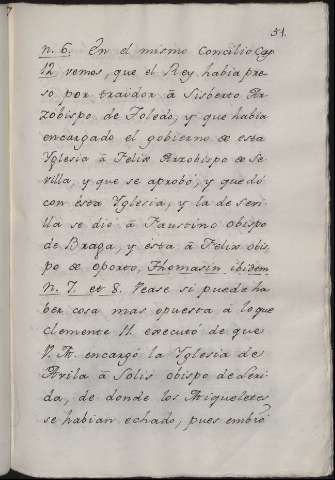 51.
n. 6. En el mismo Concilio Cap.
12 vemos, que el Rey habia pre-
so por traidor â Sisberto Ar-
zobispo de Toledo, y que habia
encargado el gobierno de esta
Yglesia â Felix Arzobispo de Se-
villa, y que se aprobó, y quedó
con esta Yglesia, y la de Sevi-
lla se dió â Faustino obispo
de Braga, y esta â Felix obis-
po de oporto, Thomasin ibidem
n. 7. et 8. Vease si puede ha-
ber cosa mas opuesta â lo que
Clemente 11. executó de que
V. A. encargó la Yglesia de
Avila â Solis obispo de Leri-
da, de donde los Miqueletes
se habian echado, pues embió